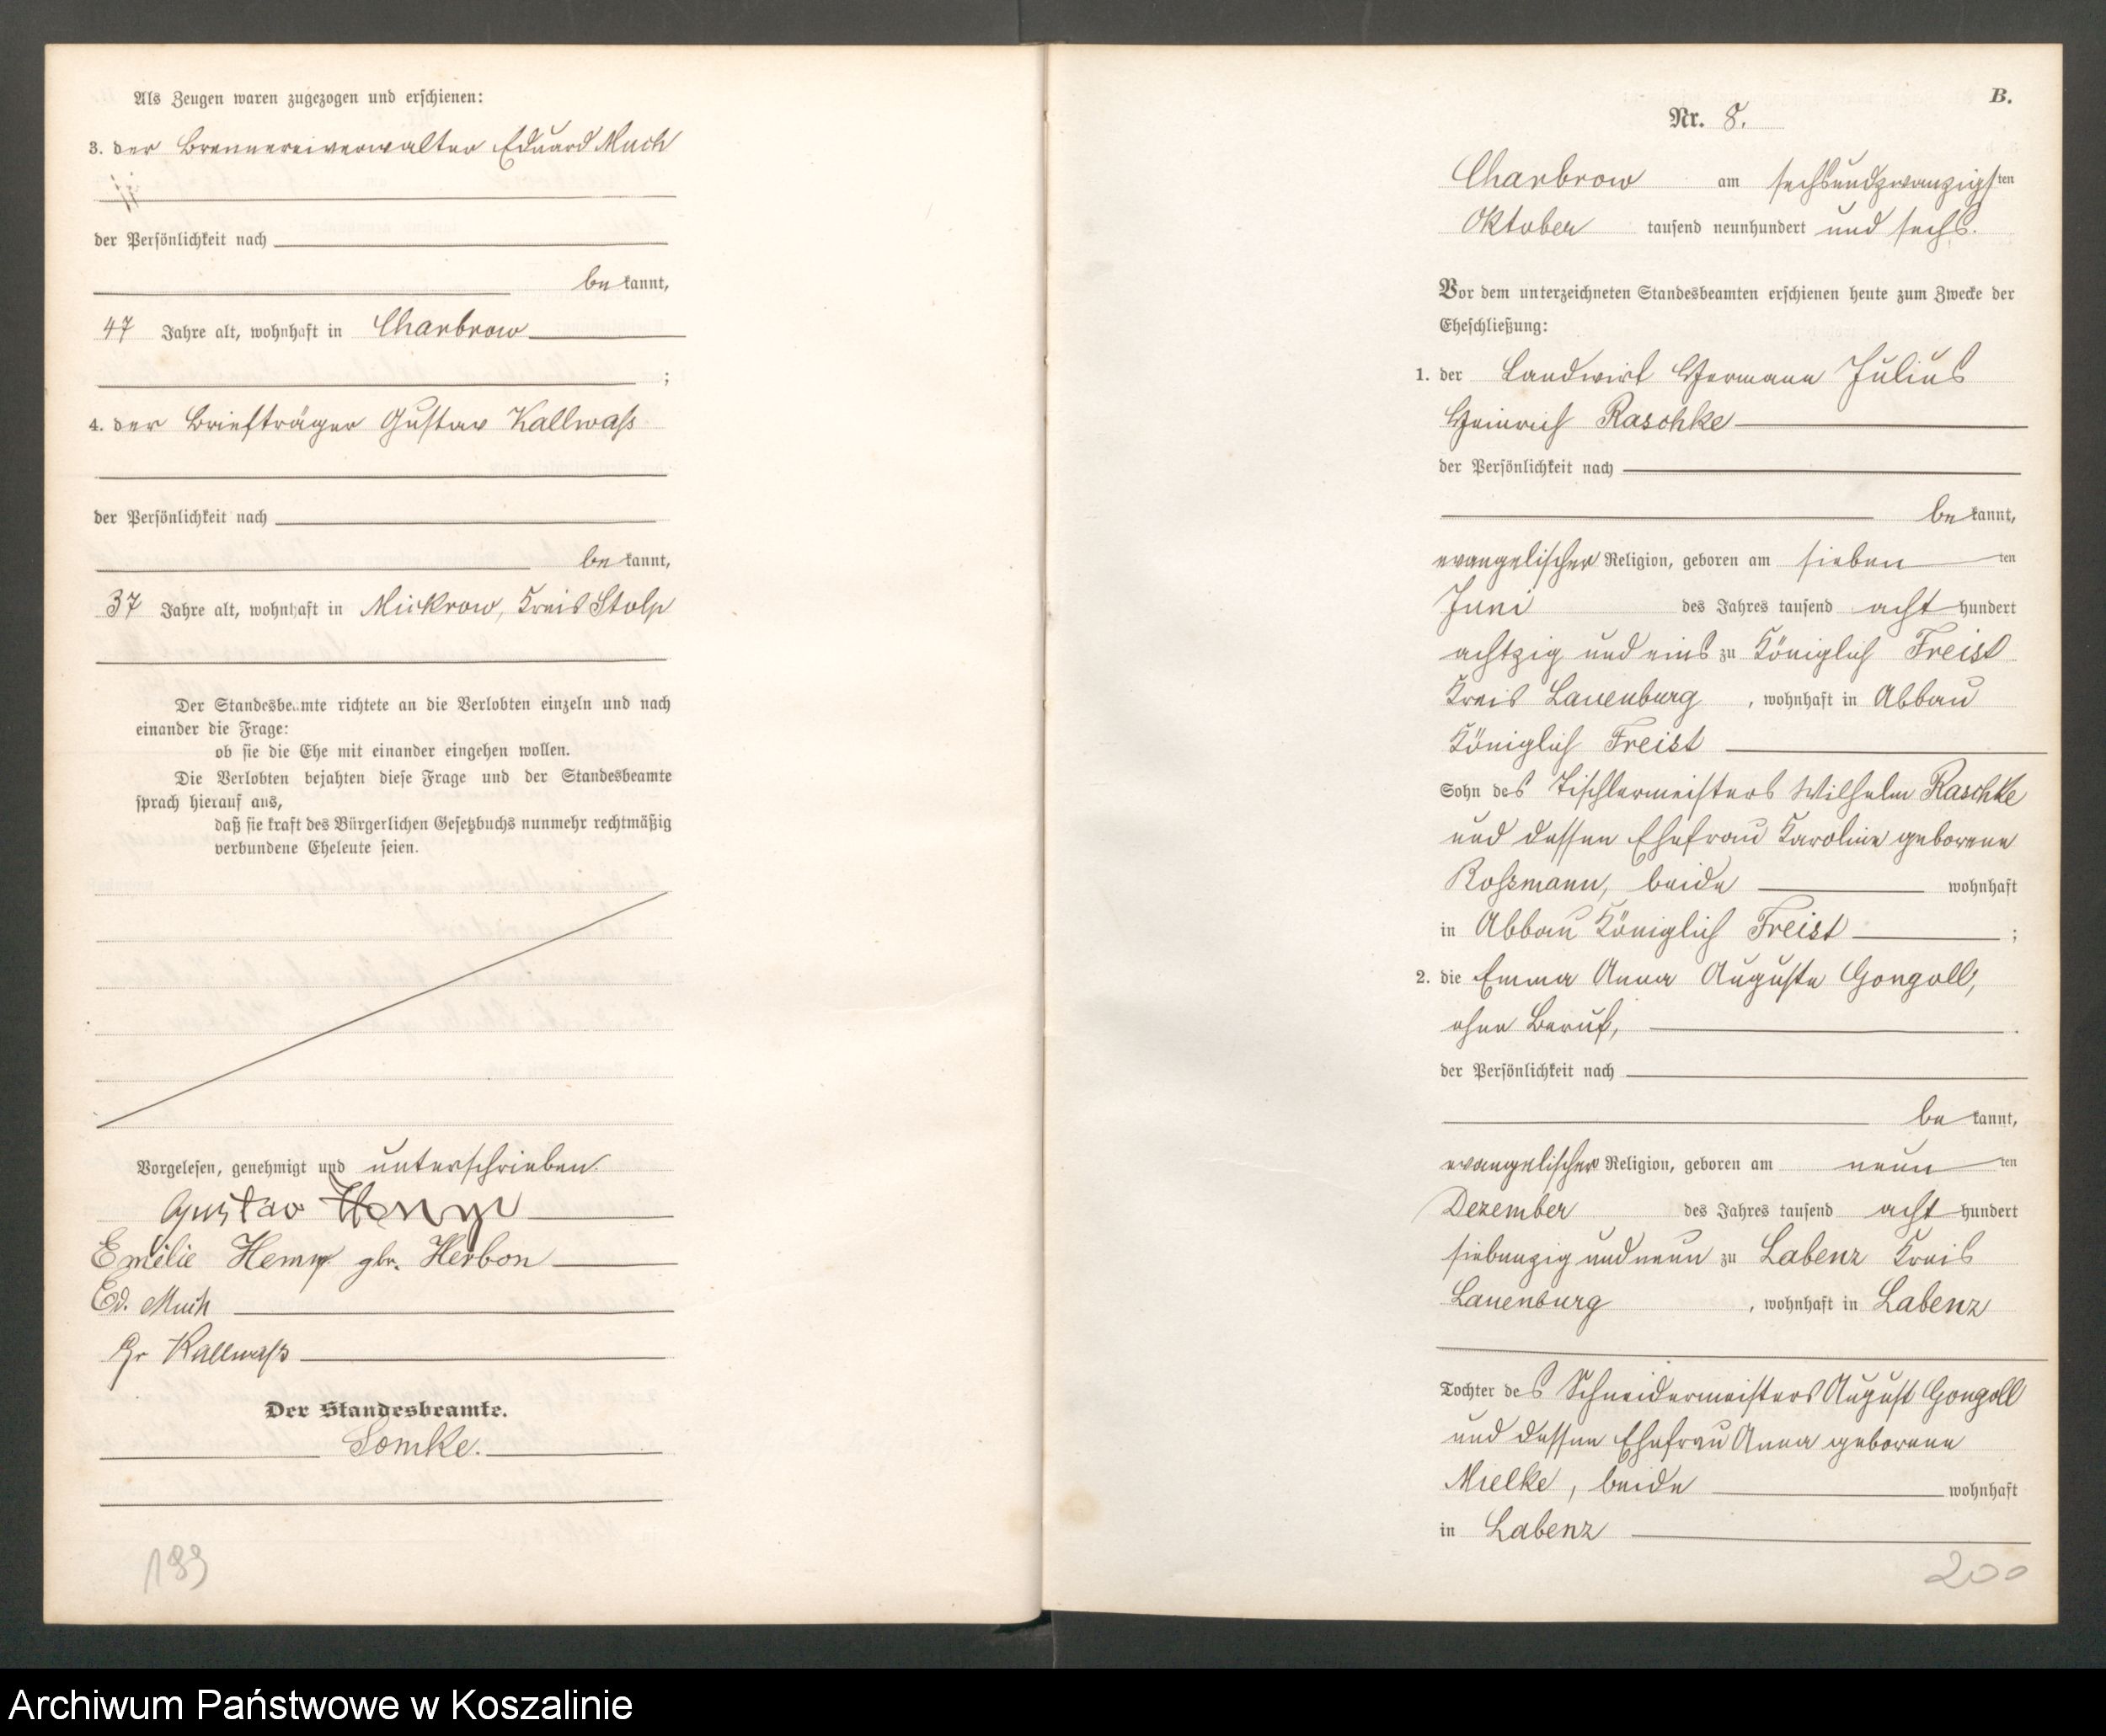 Als Zeugen waren zugezogen und erschienen:
3. der Brennereiverwalter Eduard Much
der Persönlichkeit nach
be kannt,
47 Jahre alt, wohnhaft in Charbrow
;
4. der Briefträger Gustav Kallwaß
der Persönlichkeit nach
be kannt,
37 Jahre alt, wohnhaft in Mickrow, Kreis Stolp
Der Standesbeamte richtete an die Verlobten einzeln und nach
einander die Frage:
ob sie die Ehe mit einander eingehen wollen.
Die Verlobten bejahten diese Frage und der Standesbeamte
sprach hierauf aus,
daß sie kraft des Bürgerlichen Gesetzbuchs nunmehr rechtmäßig
verbundene Eheleute seien.
Vorgelesen, genehmigt und unterschrieben
Gustav
Emilie Hemp gbr. Herbon
Ed. Much
Kallwaß
Der Standesbeamte.
Lomke.
199
B.
Nr. 8.
Charbrow am sechsundzwanzigsten
Oktober tausend neunhundert und sechs.
Vor dem unterzeichneten Standesbeamten erschienen heute zum Zwecke der
Eheschließung:
1. der Landwirt Hermann Julius
Heinrich Raschke
der Persönlichkeit nach
be kannt,
evangelischer Religion, geboren am sieben ten
Juni des Jahres tausend acht hundert
achtzig und eins zu Königlich Freist
Kreis Lauenburg , wohnhaft in Abbau
Königlich Freist
Sohn des Tischlermeisters Wilhelm Raschke
und dessen Ehefrau Karoline geborene
Roßmann, beide wohnhaft
in Abbau Königlich Freist ;
2. die Emma Anna Auguste Gongoll,
ohne Beruf,
der Persönlichkeit nach
be kannt,
evangelischer Religion, geboren am neun ten
Dezember des Jahres tausend acht hundert
siebenzig und neun zu Labenz Kreis
Lauenburg , wohnhaft in Labenz
Tochter des Schneidermeisters August Gongoll
und dessen Ehefrau Anna geborene
Mielke, beide wohnhaft
in Labenz
200
Archiwum Państwowe w Koszalinie